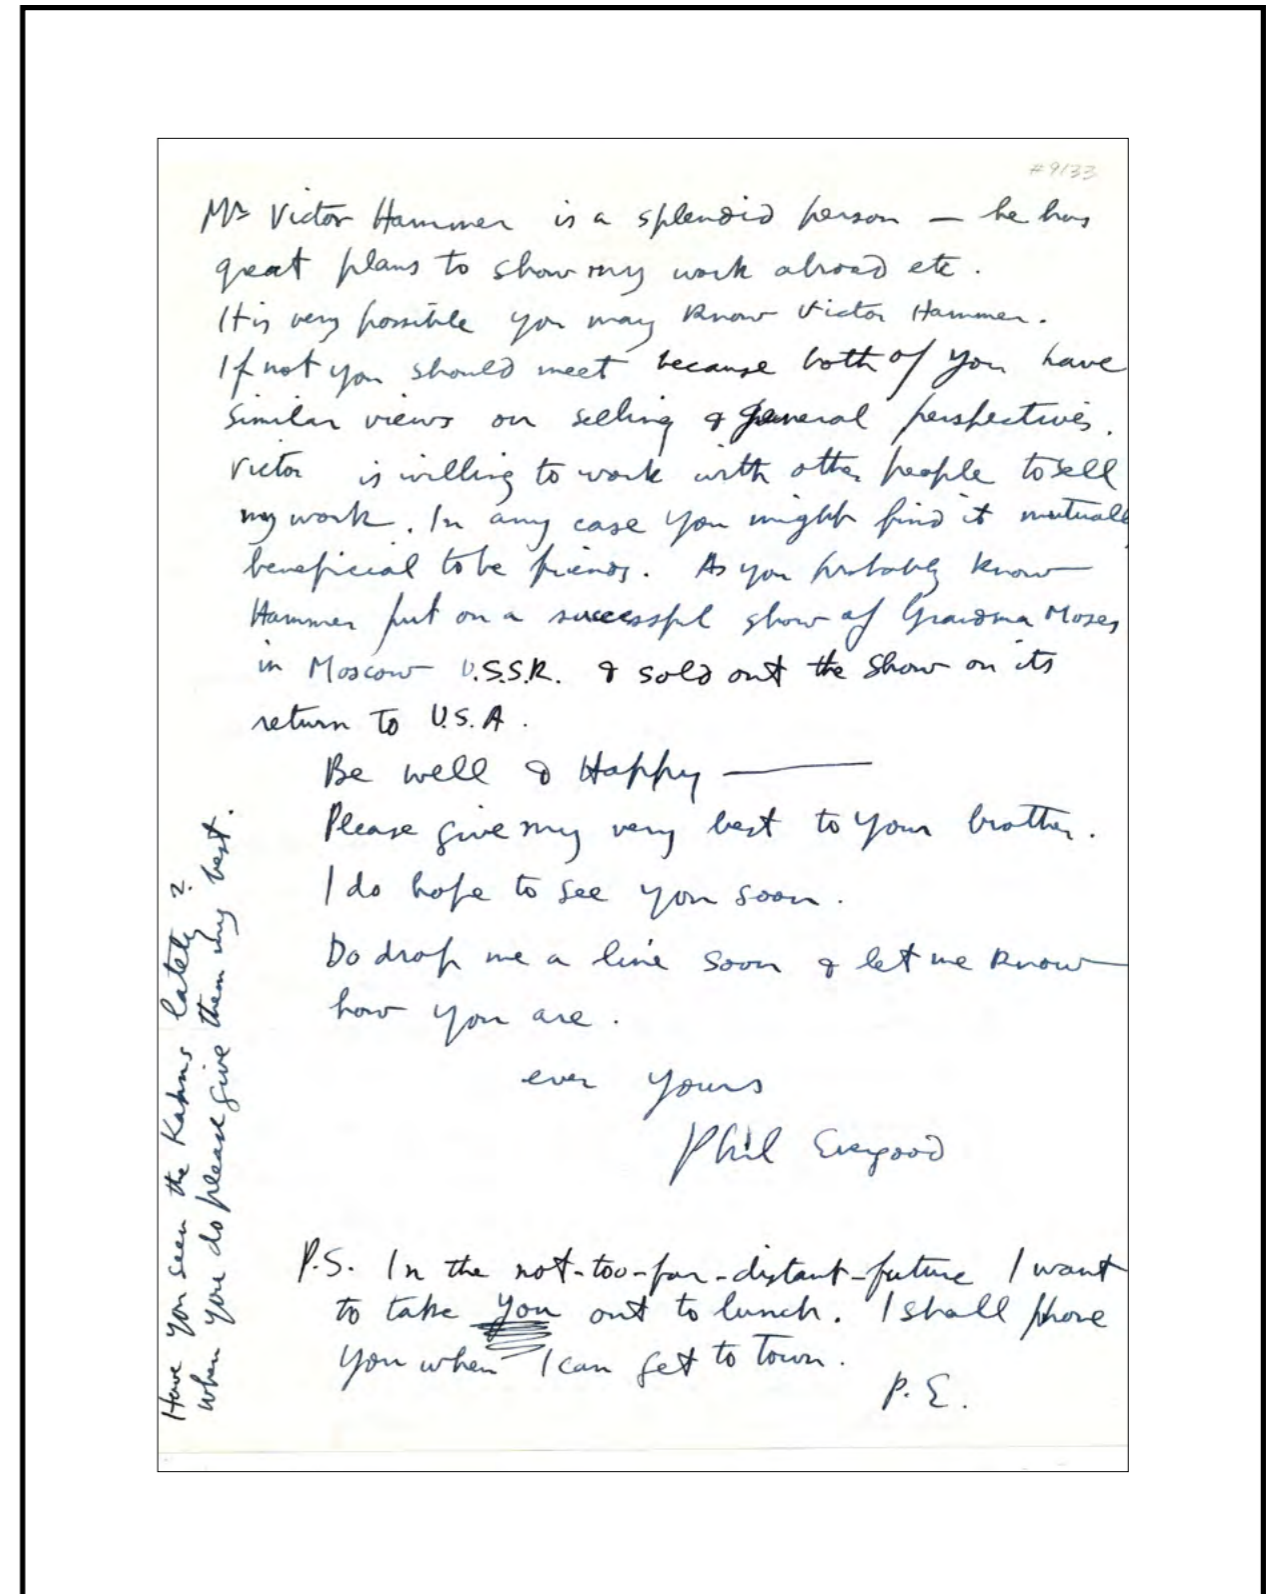 #9133
Mr Victor Hammer is a splendid person — he has
great plans to show my work abroad etc.
It is very possible you may know Victor Hammer.
If not you should meet because both of you have
similar views on selling & general perspectives.
Victor is willing to work with other people to sell
my work. In any case you might find it mutuall
beneficial to be friends. As you probably know
Hammer put on a successful show of Grandma Moses
in Moscow U.S.S.R. & sold out the show on its
return to U.S.A.
Be well & Happy —
Please give my very best to your brother.
I do hope to see you soon.
Do drop me a line soon & let me know
how you are.
ever yours
Phil Evergood
P.S. In the not-too-far-distant-future I want
to take you out to lunch. I shall phone
you when I can get to town.
P.E.
Have you seen the Kahns lately?
when you do please give them my best.